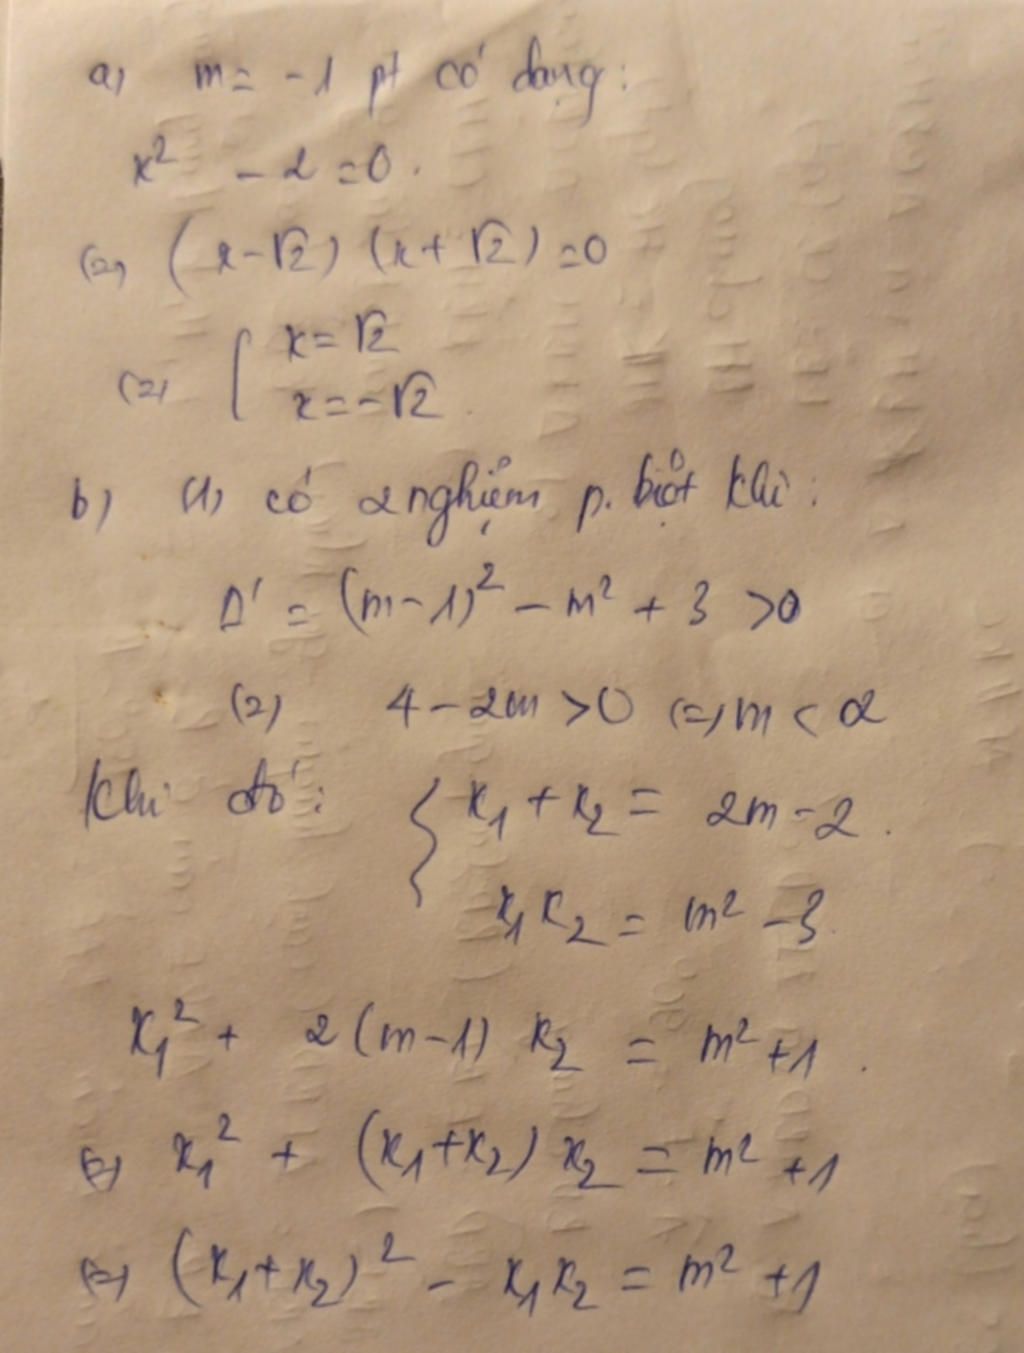 a) m = -1 pt có dạng:
x² - 2 = 0.
(=) (x-√2) (x+√2) = 0
(=) [ x = √2
x = -√2.
b) (1) có 2 nghiệm p. biệt khi:
Δ' = (m-1)² - m² + 3 > 0
(=) 4 - 2m > 0 (=) m < 2
Khi đó: { x₁ + x₂ = 2m - 2.
x₁x₂ = m² - 3.
x₁² + 2(m-1) x₂ = m² + 1.
(=) x₁² + (x₁+x₂) x₂ = m² + 1
(=) (x₁+x₂)² - x₁x₂ = m² + 1